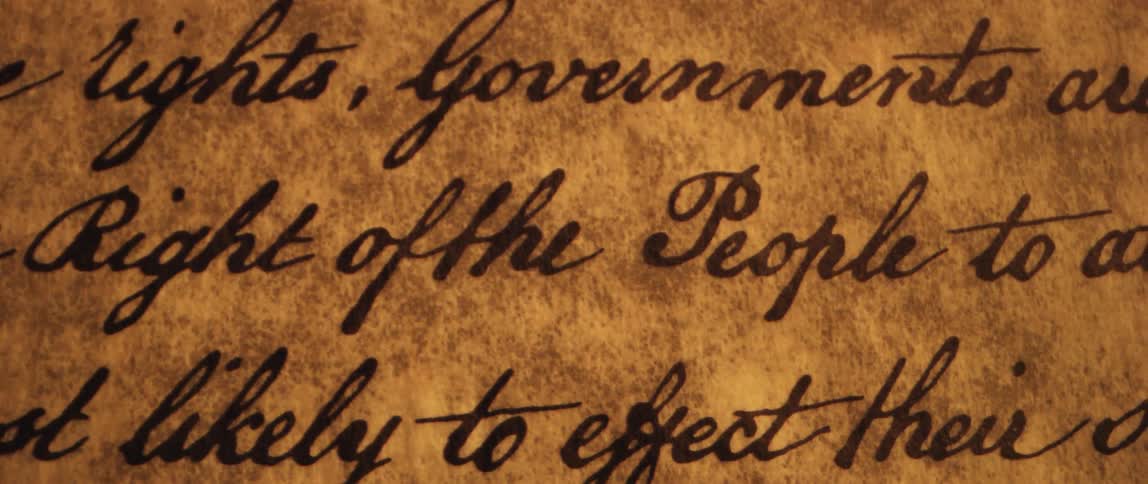 rights, Governments
Right of the People to
likely to effect their